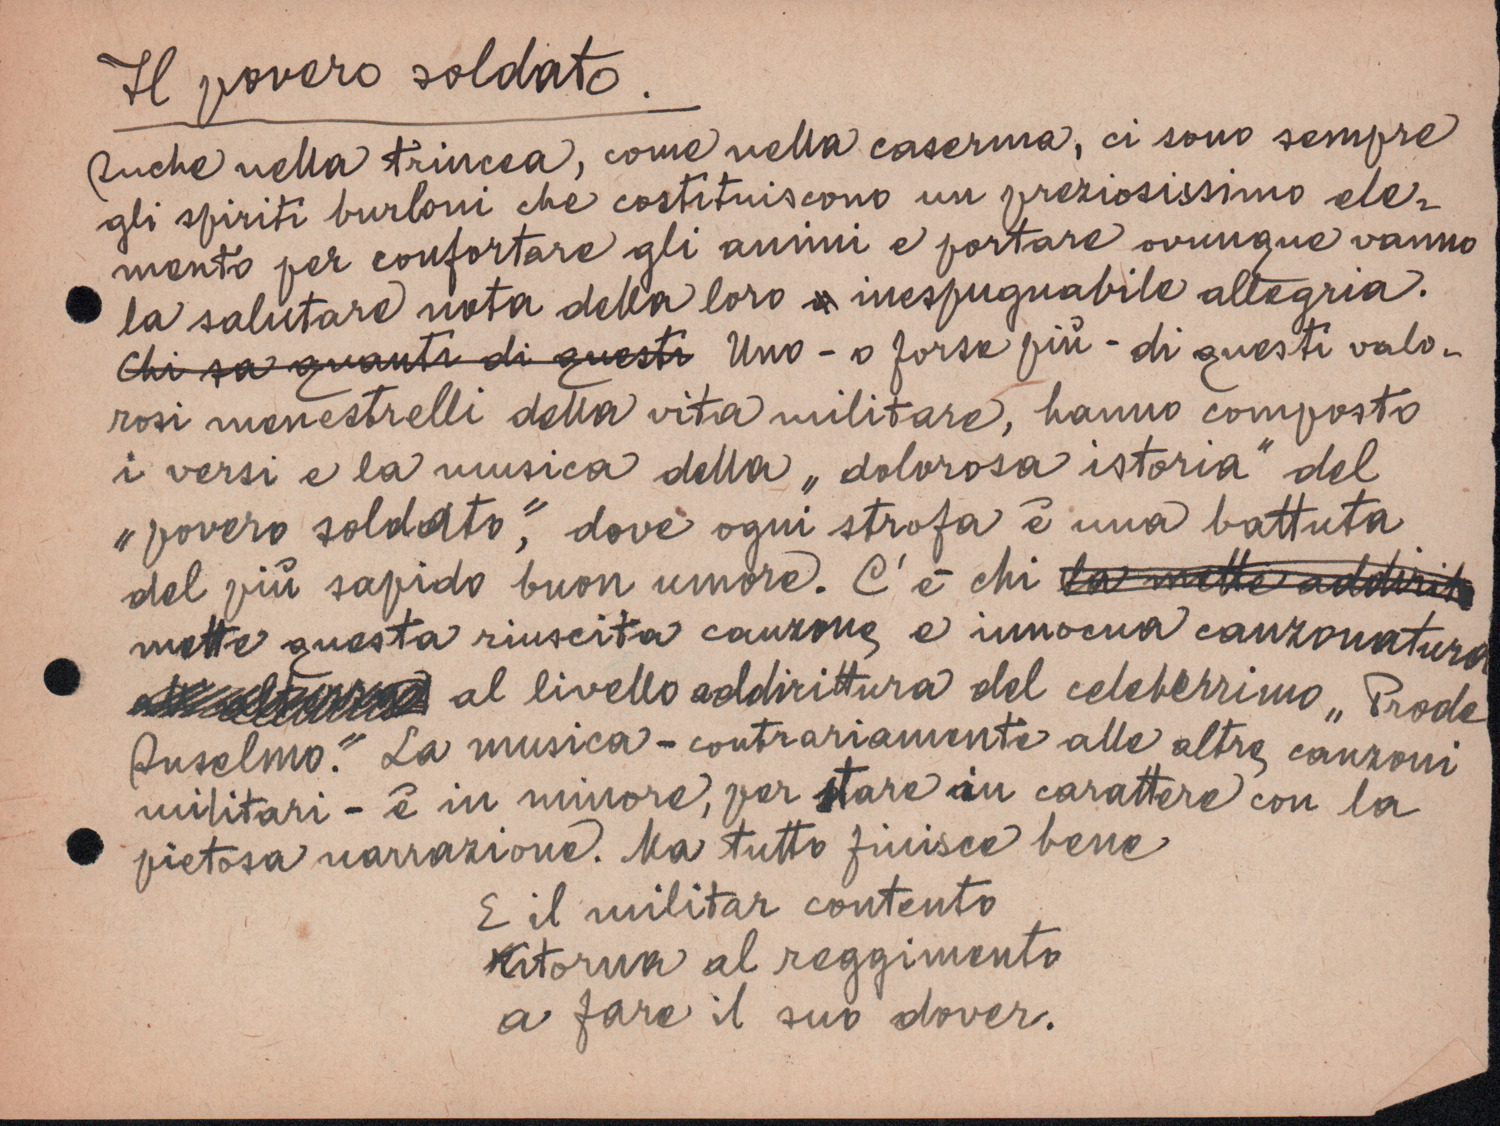 Il povero soldato.
Anche nella trincea, come nella caserma, ci sono sempre
gli spiriti burloni che costituiscono un preziosissimo ele-
mento per confortare gli animi e portare ovunque vanno
la salutare nota della loro inespugnabile allegria.
Chi sa quanti di questi Uno - o forse più - di questi valo-
rosi menestrelli della vita militare, hanno composto
i versi e la musica della „dolorosa istoria" del
„povero soldato", dove ogni strofa è una battuta
del più sapido buon umore. C'è chi la mette addirit
mette questa riuscita canzone e innocua canzonatura
al livello addirittura del celeberrimo „Prode
Anselmo". La musica - contrariamente alle altre canzoni
militari - è in minore, per stare in carattere con la
pietosa narrazione. Ma tutto finisce bene
E il militar contento
Ritorna al reggimento
a fare il suo dover.